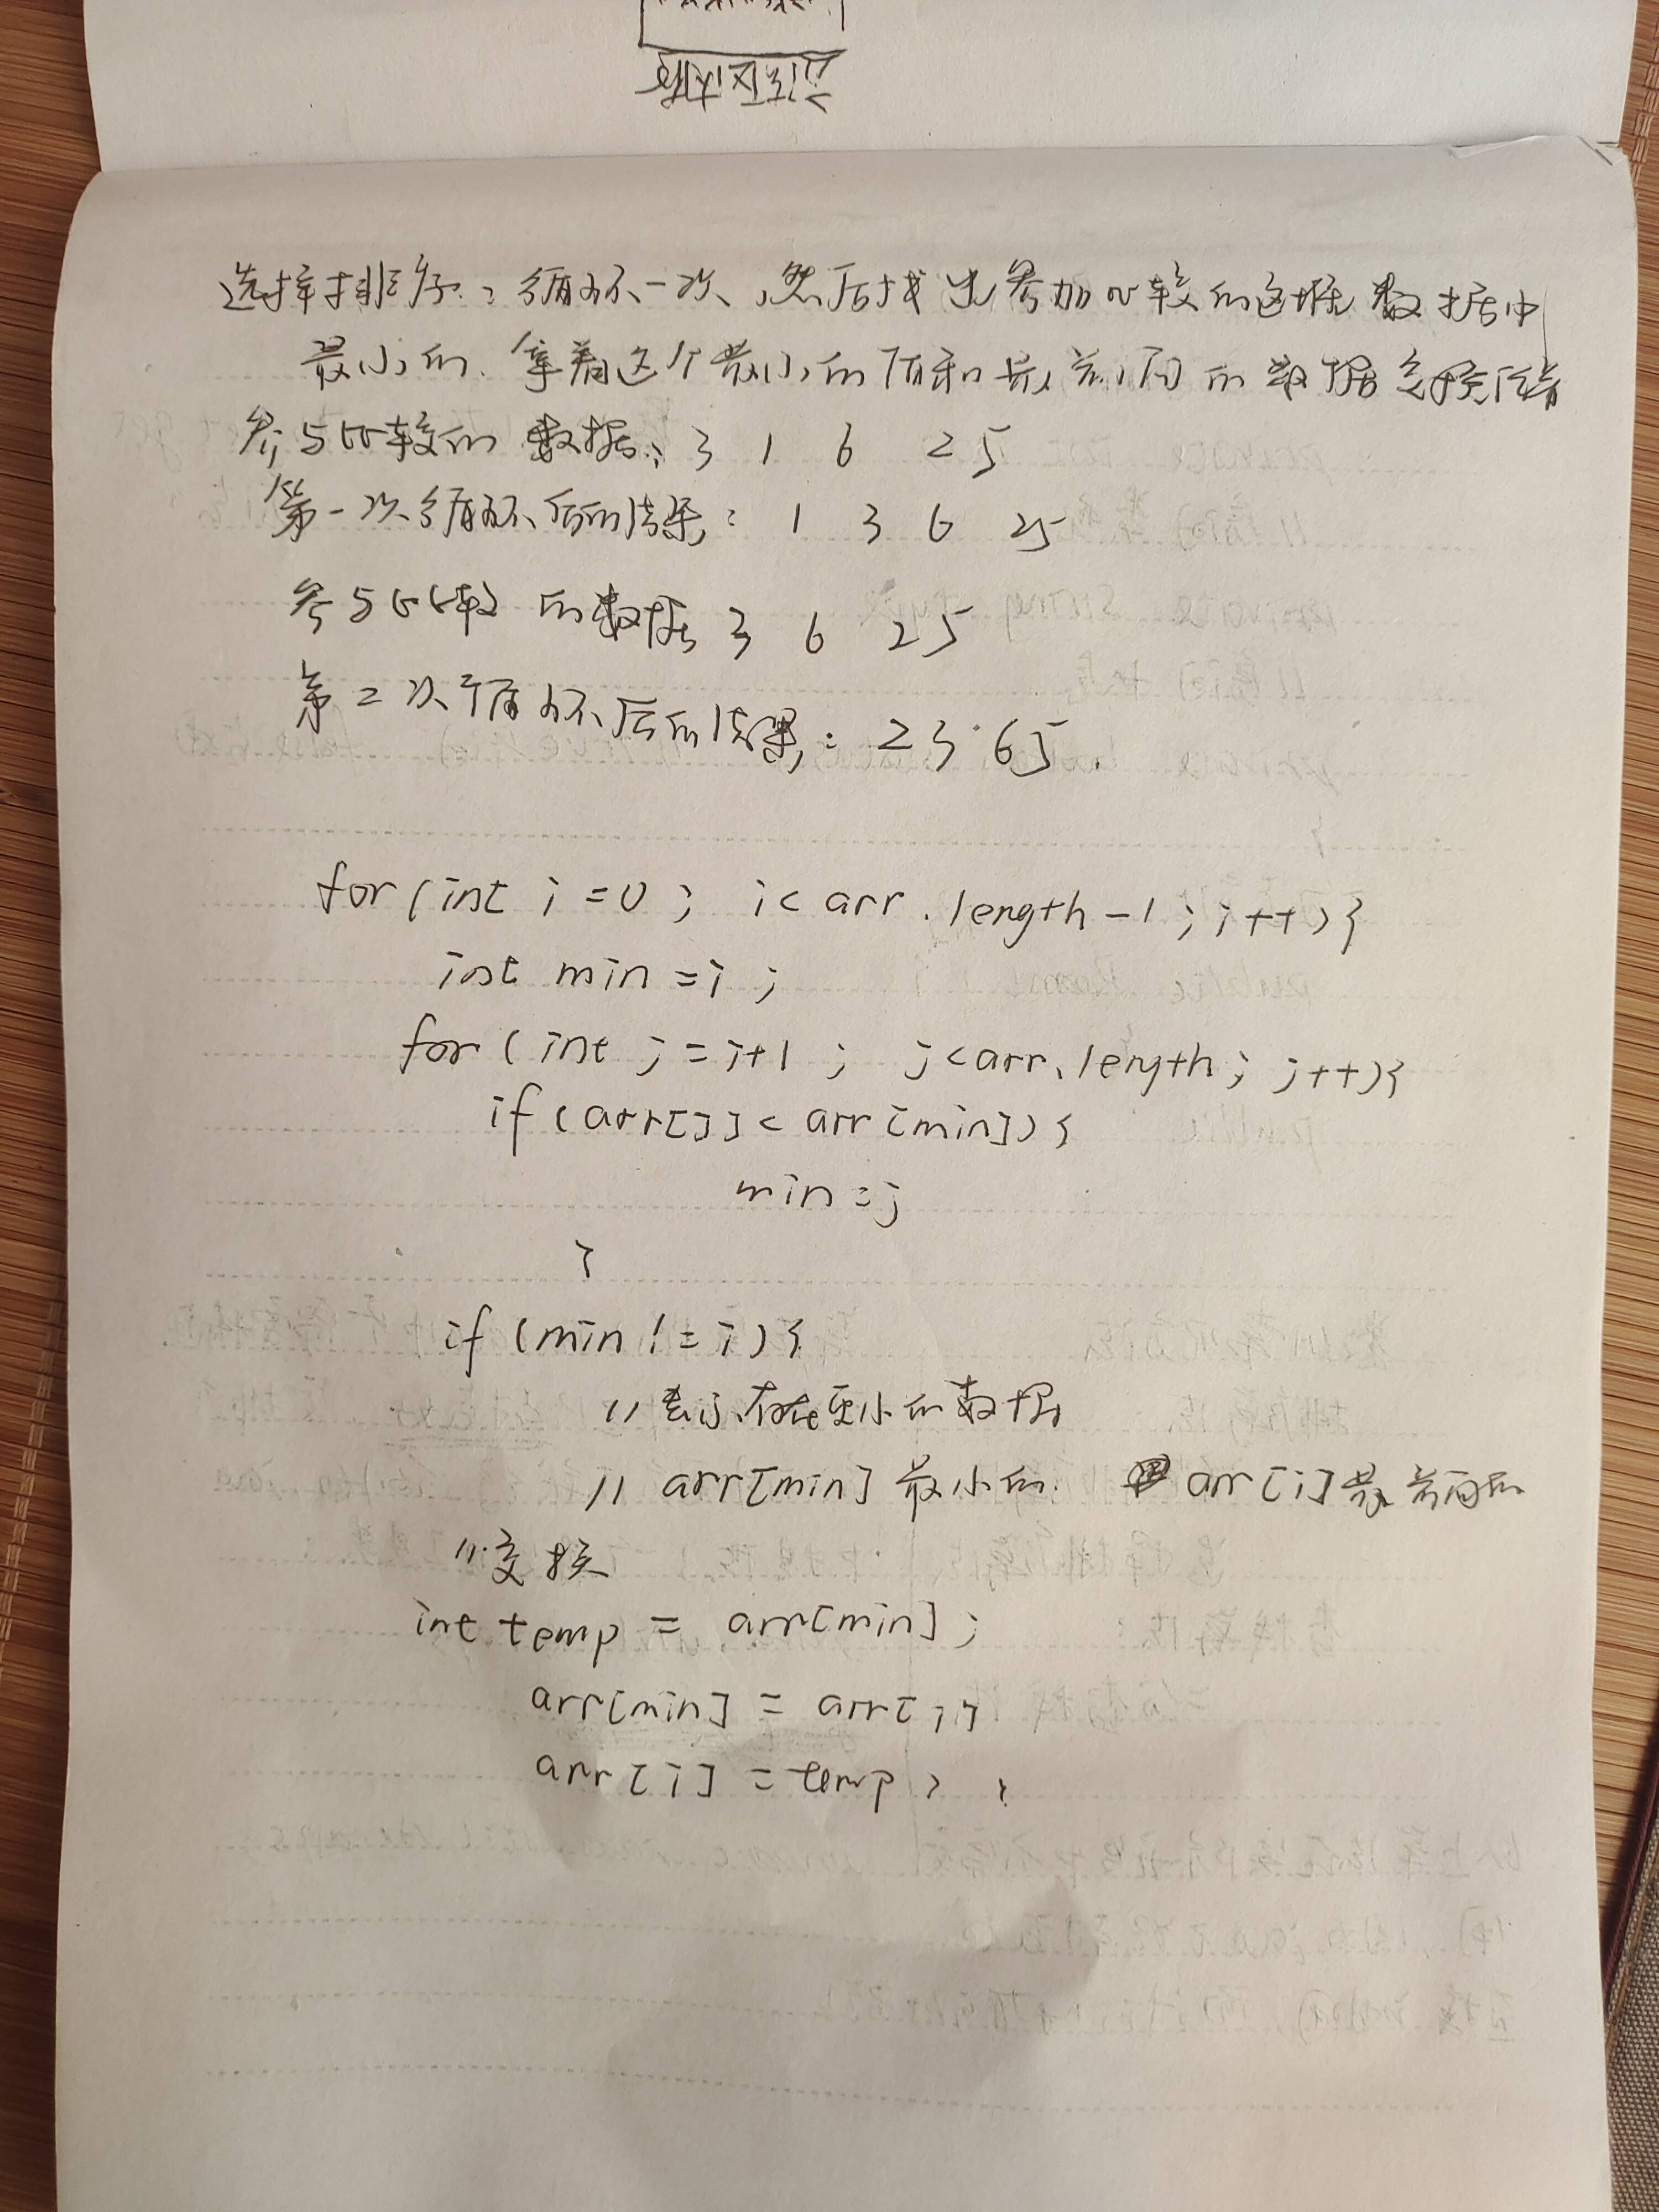 选择排序：循环一次，然后找出参加比较的这堆数据中
最小的，拿着这个最小的值和最前面的数据交换位置
参与比较的数据：3 1 6 2 5
第一次循环后的结果：1 3 6 2 5
参与比较的数据 3 6 2 5
第二次循环后的结果：2 3 6 5.
for(int i=0; i<arr.length-1; i++){
int min=i;
for(int j=i+1; j<arr.length; j++){
if(arr[j]<arr[min]){
min=j
}
if(min!=i){
//表示存在更小的数据
// arr[min]最小的. arr[i]最前面的
//交换
int temp = arr[min];
arr[min] = arr[i];
arr[i]=temp;